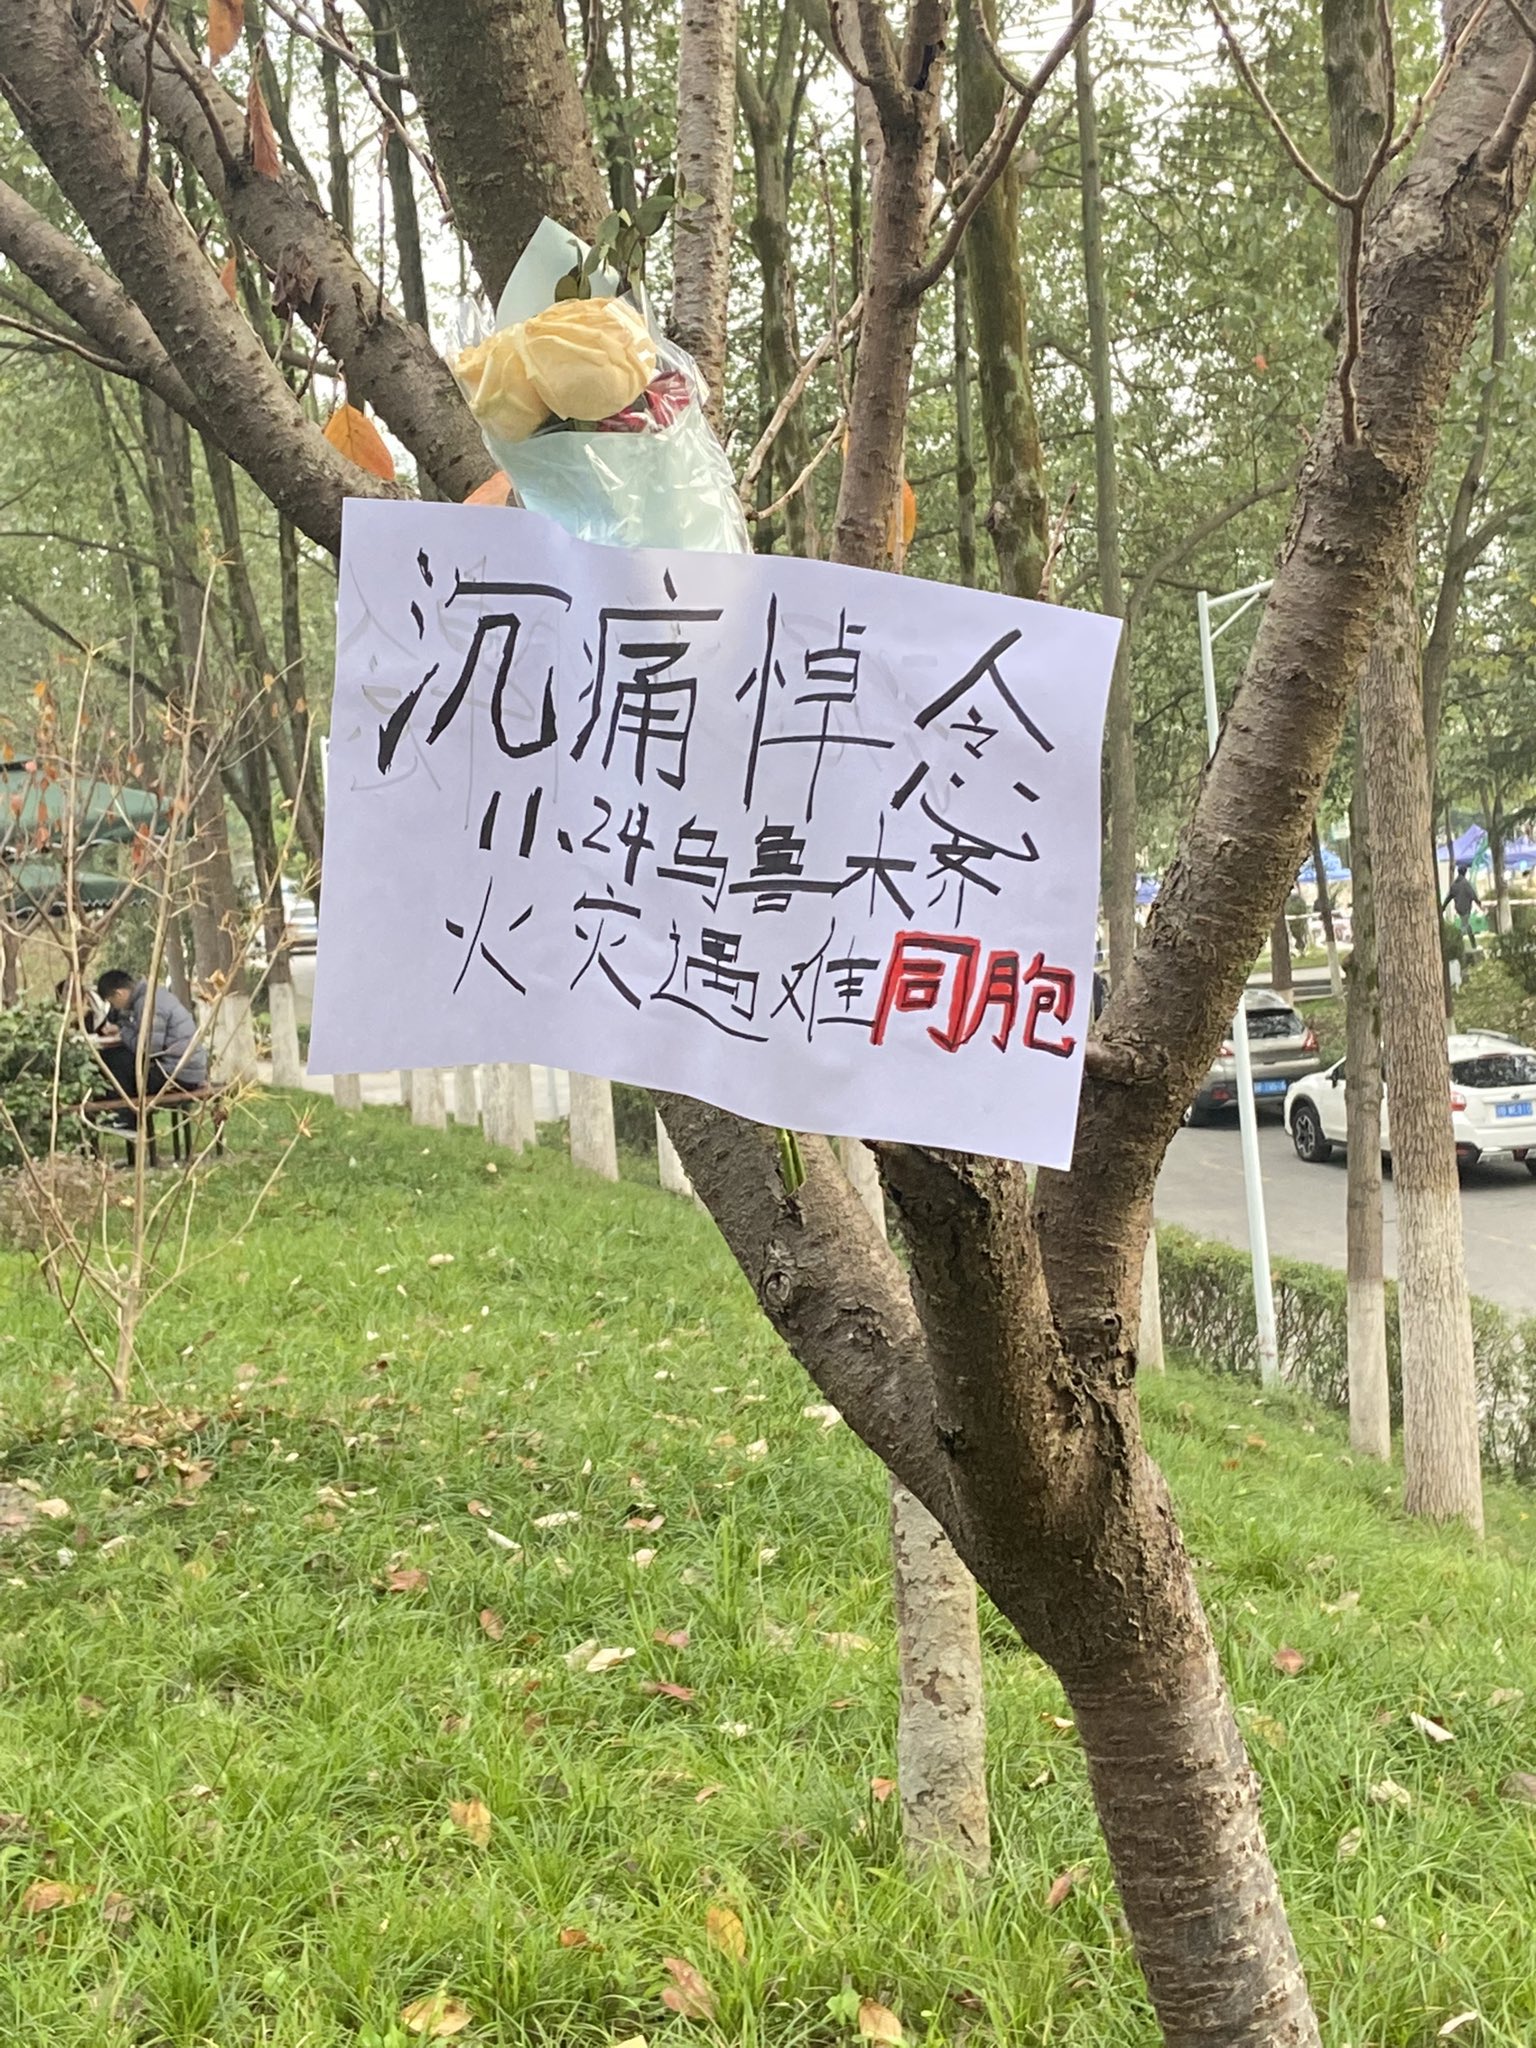 沉痛悼念
11.24乌鲁木齐
火灾遇难同胞